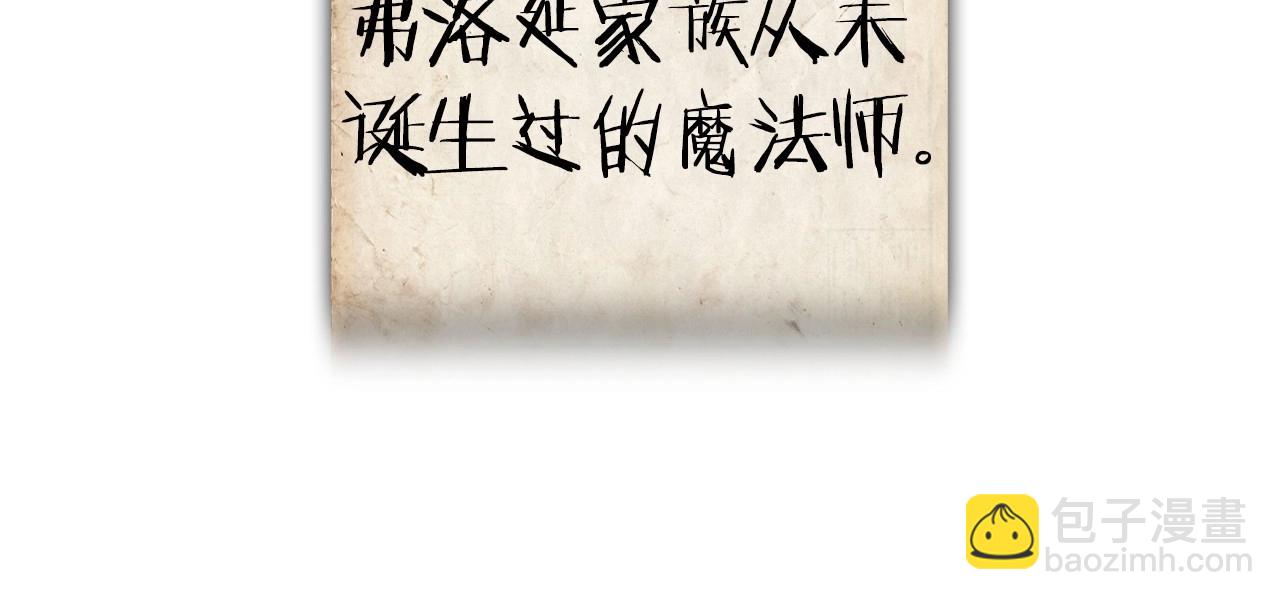 弗洛延家族从未
诞生过的魔法师。
包子漫畫
baozimh.com